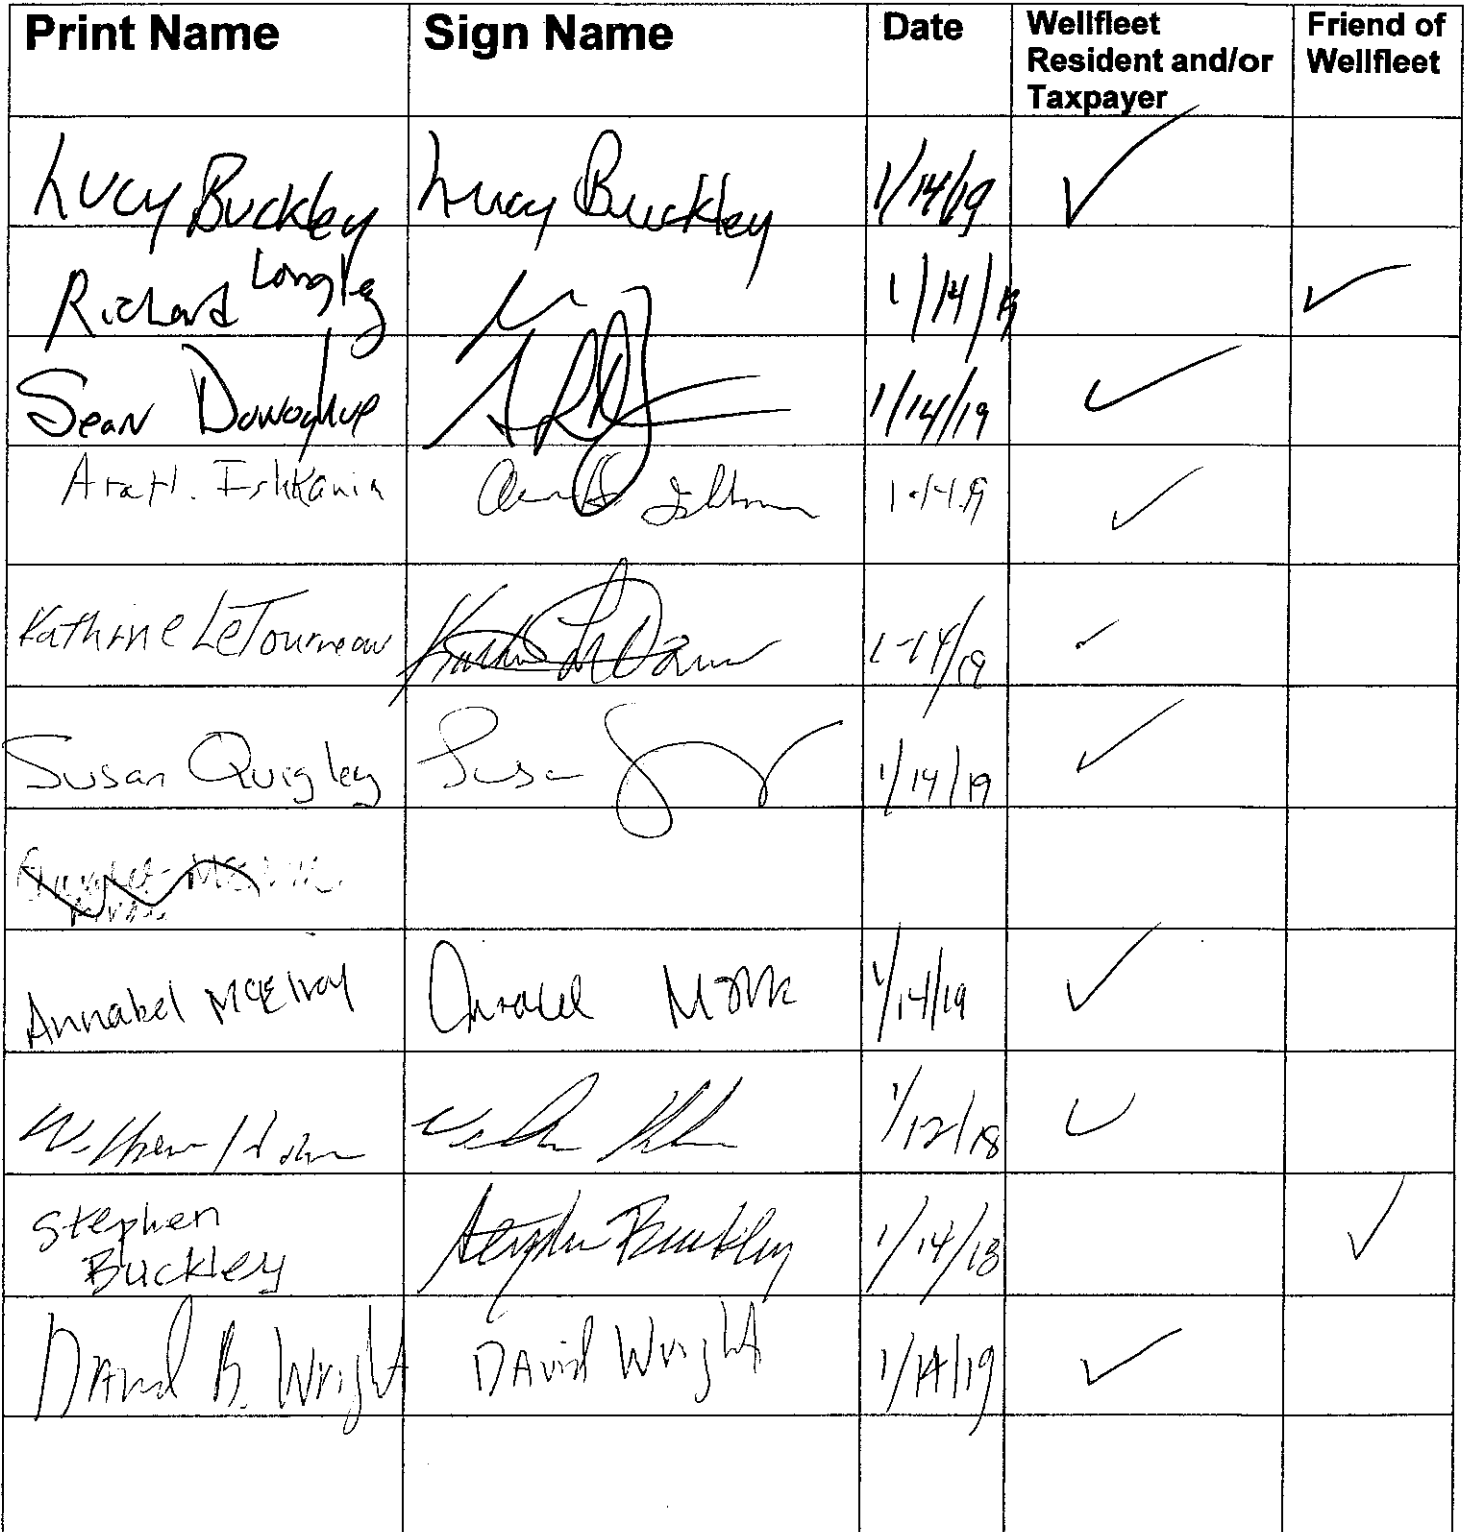 Print Name Sign Name Date Wellfleet Resident and/or Taxpayer Friend of Wellfleet
Lucy Buckley Lucy Buckley 1/14/19 ✓
Richard Longley 1/14/19 ✓
Sean Donoghue 1/14/19 ✓
Ara H. Ishkanian 1.14.19 ✓
Kathrine LeTourneau 1-14/19 ✓
Susan Quigley Susan 1/14/19 ✓
Annabel McElroy Annabel 1/14/19 ✓
1/12/18 ✓
Stephen Buckley Stephen Buckley 1/14/18 ✓
David B. Wright David Wright 1/14/19 ✓